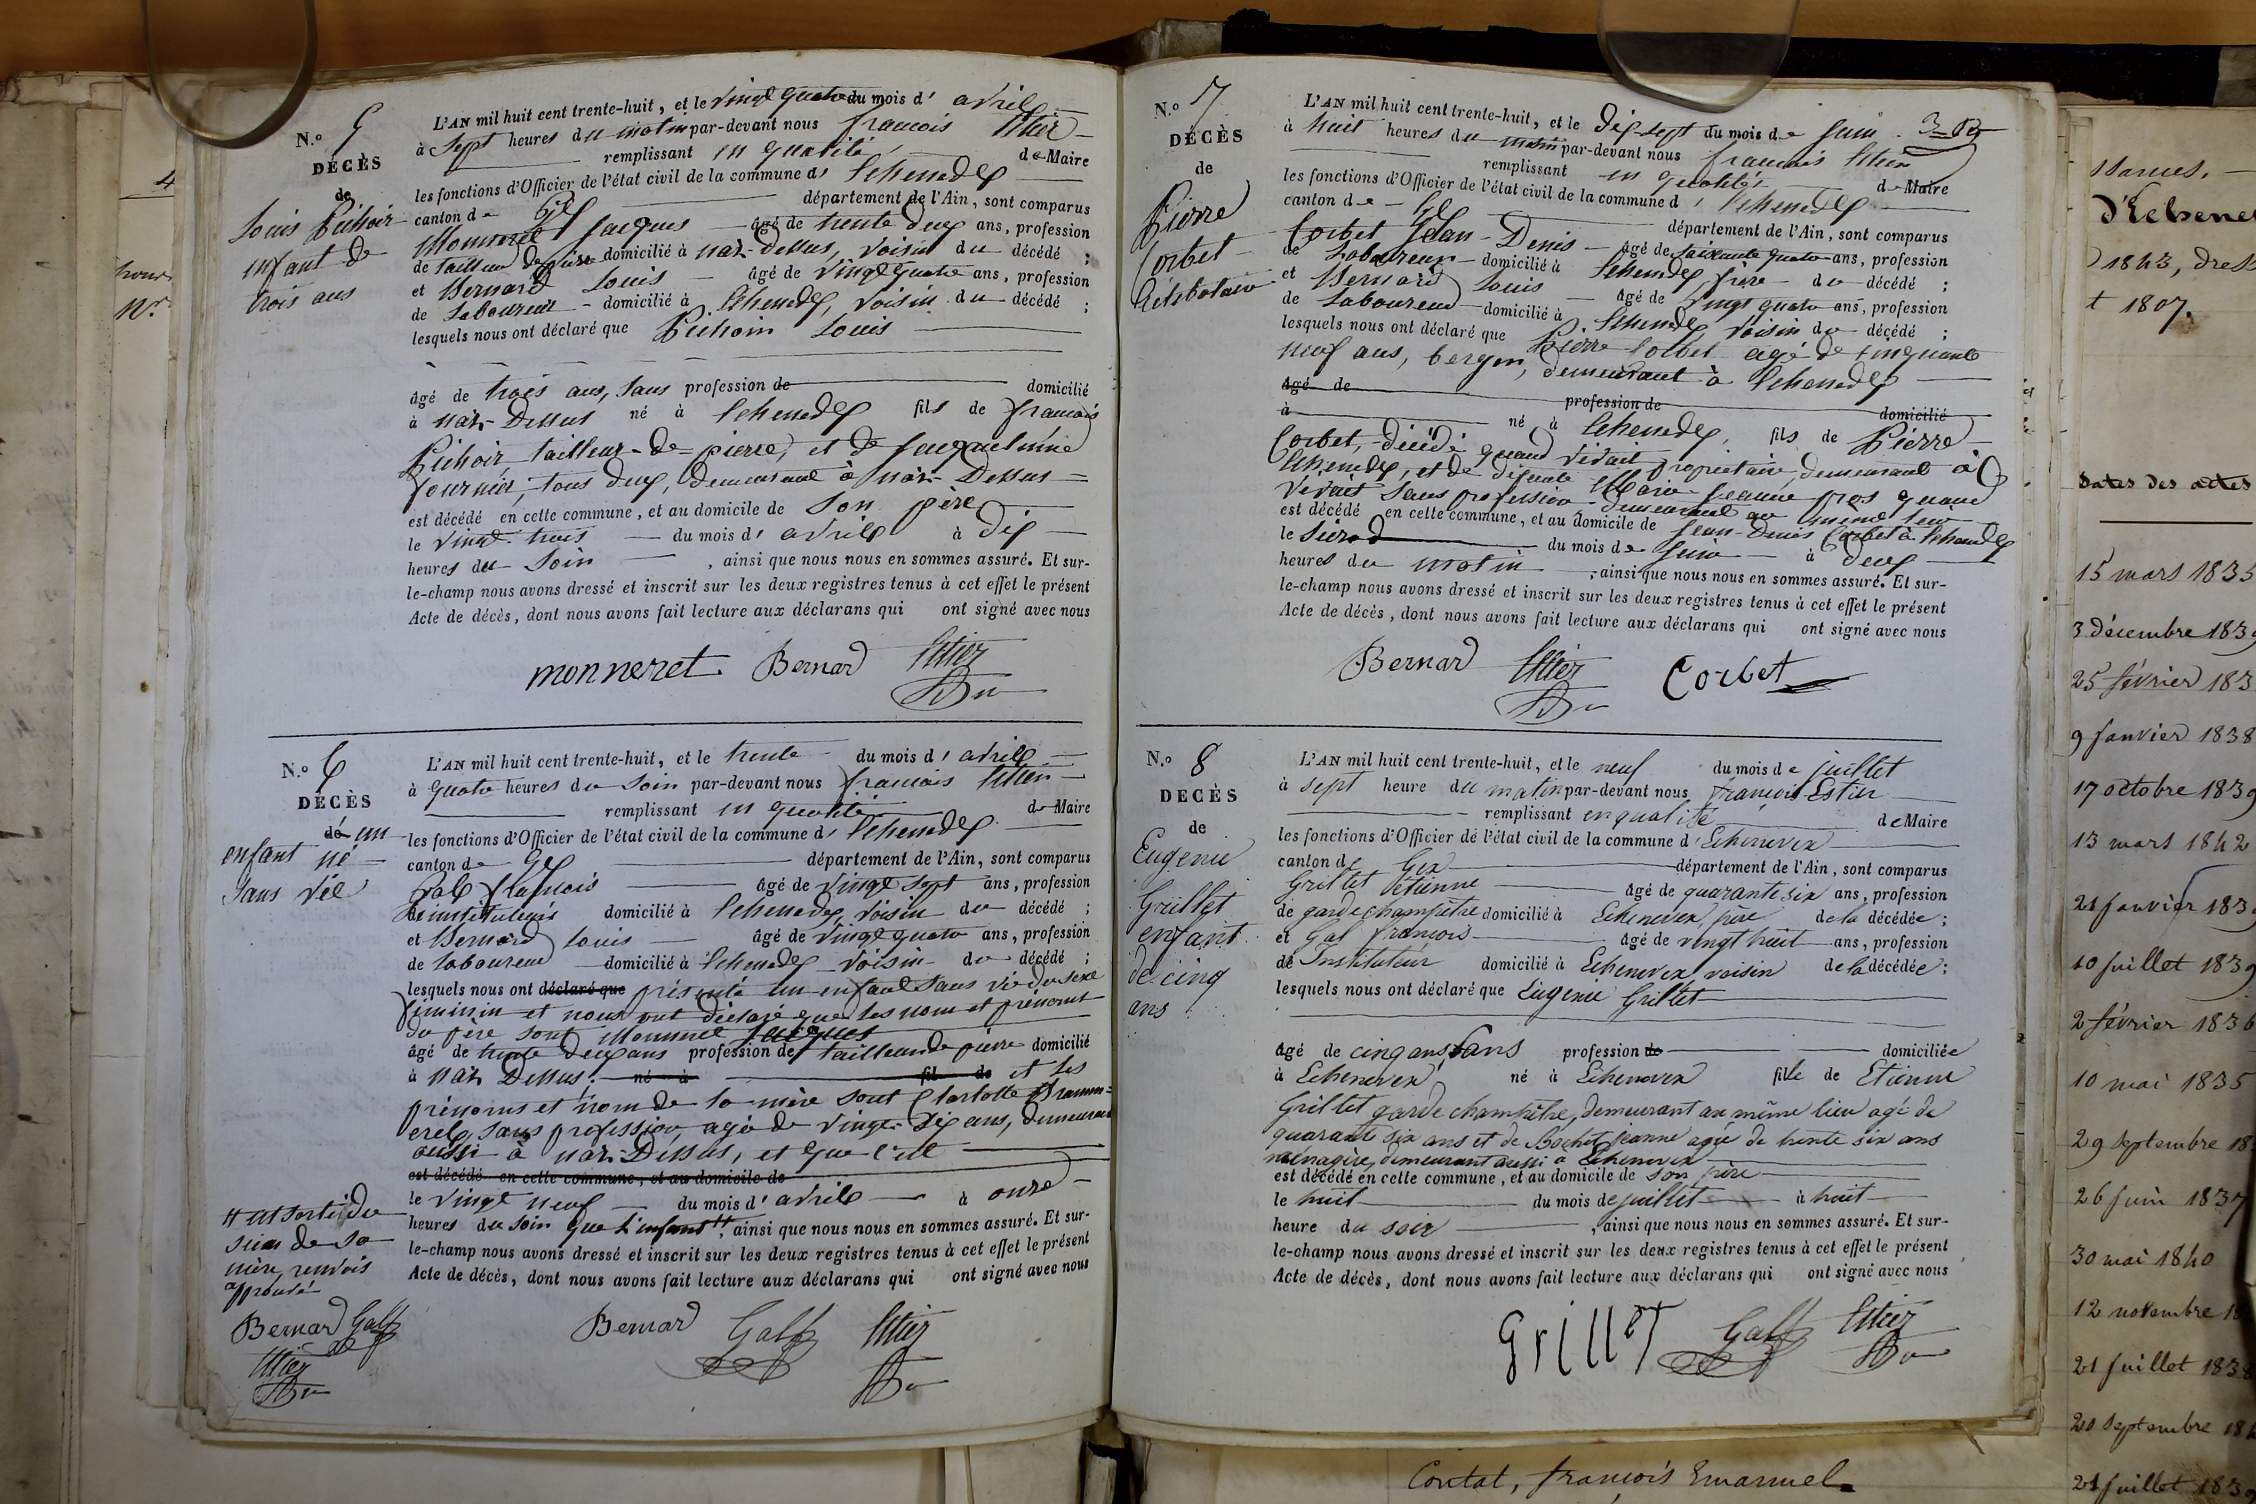 N.º 5
DÉCÈS
de
Louis Pichoir
enfant de
trois ans
L'AN mil huit cent trente-huit, et le vingt quatre du mois d' avril
à sept heures du matin par-devant nous françois Estier
remplissant en qualité de Maire
les fonctions d'Officier de l'état civil de la commune d' Echenevex
canton de Gex département de l'Ain, sont comparus
Monneret Jacques âgé de trente deux ans, profession
de tailleur de pierre domicilié à naz-Dessus, voisin du décédé ;
et Bernard Louis âgé de vingt quatre ans, profession
de laboureur domicilié à Echenevex, voisin du décédé ;
lesquels nous ont déclaré que Pichoir Louis
âgé de trois ans, sans profession de domicilié
à naz-Dessus né à Echenevex fils de françois
Pichoir, tailleur-de-pierre, et de Jacqueline
fournier, tous deux, demeurant à naz-Dessus
est décédé en cette commune, et au domicile de son père
le vingt-trois du mois d' avril à dix
heures du soir , ainsi que nous nous en sommes assuré. Et sur-
le-champ nous avons dressé et inscrit sur les deux registres tenus à cet effet le présent
Acte de décès, dont nous avons fait lecture aux déclarans qui ont signé avec nous
monneret Bernard Estier
N.º 6
DÉCÈS
de un
enfant né
sans vie
L'AN mil huit cent trente-huit, et le trente du mois d' avril
à quatre heures du soir par-devant nous françois Estier
remplissant en qualité de Maire
les fonctions d'Officier de l'état civil de la commune d' Echenevex
canton de Gex département de l'Ain, sont comparus
Gal françois âgé de vingt sept ans, profession
de instituteur domicilié à Echenevex, voisin du décédé ;
et Bernard Louis âgé de vingt quatre ans, profession
de laboureur domicilié à Echenevex voisin du décédé ;
lesquels nous ont déclaré que présenté un enfant sans vie du sexe
féminin et nous ont déclaré que les nom et prénoms
du père sont Monneret Jacques
âgé de trente deux ans profession de tailleur de pierre domicilié
à naz Dessus. né à fil de et les
prénoms et nom de la mère sont Charlotte
sans profession, agée de vingt-six ans, demeurant
aussi à naz-Dessus, et que c'est
est décédé en cette commune, et au domicile de
le vingt neuf du mois d' avril à onze
heures du soir que l'enfant , ainsi que nous nous en sommes assuré. Et sur-
le-champ nous avons dressé et inscrit sur les deux registres tenus à cet effet le présent
Acte de décès, dont nous avons fait lecture aux déclarans qui ont signé avec nous
est sorti du
sein de sa
mère, renvois
approuvé
Bernard Gal
Estier
Bernard Gal Estier
N.º 7
DÉCÈS
de
Pierre
Corbet
Célibataire
L'AN mil huit cent trente-huit, et le dix-sept du mois de Juin
à huit heures du matin par-devant nous françois Estier
remplissant en qualité de Maire
les fonctions d'Officier de l'état civil de la commune d' Echenevex
canton de Gex département de l'Ain, sont comparus
Corbet Jean-Denis âgé de soixante quatre ans, profession
de laboureur domicilié à Echenevex, frère du décédé ;
et Bernard Louis âgé de vingt quatre ans, profession
de laboureur domicilié à Echenevex voisin du décédé ;
lesquels nous ont déclaré que Pierre Corbet agé de cinquante
neuf ans, berger, demeurant à Echenevex
âgé de profession de domicilié
à né à Echenevex, fils de Pierre
Corbet, décédé quand vivait propriétaire, demeurant à
Echenevex, et de défunte Marie Jeanne gros quand
vivait sans profession demeurant au même lieu
est décédé en cette commune, et au domicile de Jean-Denis Corbet à Echenevex
le du mois de Juin à deux
heures du matin , ainsi que nous nous en sommes assuré. Et sur-
le-champ nous avons dressé et inscrit sur les deux registres tenus à cet effet le présent
Acte de décès, dont nous avons fait lecture aux déclarans qui ont signé avec nous
Bernard Estier Corbet
N.º 8
DECÈS
de
Eugenie
Grillet
enfant
de cinq
ans
L'AN mil huit cent trente-huit, et le neuf du mois de juillet
à sept heure du matin par-devant nous françois Estier
remplissant en qualité de Maire
les fonctions d'Officier de l'état civil de la commune d' Echenevex
canton de Gex département de l'Ain, sont comparus
Grillet Etienne âgé de quarante six ans, profession
de garde champêtre domicilié à Echenevex père de la décédée ;
et Gal françois âgé de vingt huit ans, profession
de Instituteur domicilié à Echenevex voisin de la décédée ;
lesquels nous ont déclaré que Eugenie Grillet
âgé de cinq ans, sans profession de domiciliée
à Echenevex né à Echenevex fille de Etienne
Grillet garde champêtre, demeurant au même lieu agé de
quarante six ans et de Bochet jeanne agée de trente six ans
ménagère, demeurant aussi à Echenevex
est décédé en cette commune, et au domicile de son père
le huit du mois de juillet à huit
heure du soir , ainsi que nous nous en sommes assuré. Et sur-
le-champ nous avons dressé et inscrit sur les deux registres tenus à cet effet le présent
Acte de décès, dont nous avons fait lecture aux déclarans qui ont signé avec nous
Grillet Gal Estier
d'Echene
1843, dress
t 1807.
Dates des actes
15 mars 1835
3 décembre 1839
25 février 183
9 janvier 1838
17 octobre 1839
13 mars 1842
21 janvier 1839
10 juillet 1839
2 février 1836
10 mai 1835
29 septembre 18
26 juin 1837
30 mai 1840
12 novembre 18
21 juillet 1838
20 septembre 18
21 juillet 1839
Contat, françois Emanuel